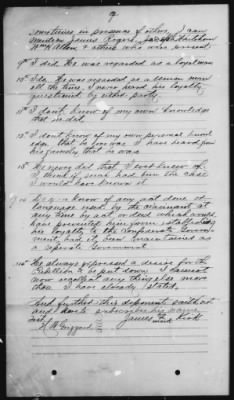 9
sometimes in presence of others, I can
mention James Rogers, Hutchison
Wm H Allen & others who were present
9th I did. He was regarded as a loyal man
10th I do. He was regarded as a Union man
all the time, I never heard his loyalty
questioned by either party.
11th I don't know of my own knowledge
that he did.
12th I don't know of my own personal knowl
edge that he ever was. I have heard from
his family that he was.
13th He never did that I ever knew of
I think if such had been the case
I would have known it
14 I don't know of any act done or
language used by the claimant at
any time by act or deed which would
have prevented him from establishing
his loyalty to the Confederate Govern-
ment had it been maintained as
a separate Government
15th He always expressed a desire for the
rebellion to be put down. I cannot
now recollect any thing else more
than I have already stated.
And further this deponent saith not
and hereto subscribes his name
Test James his mark Scott
H M Guggard